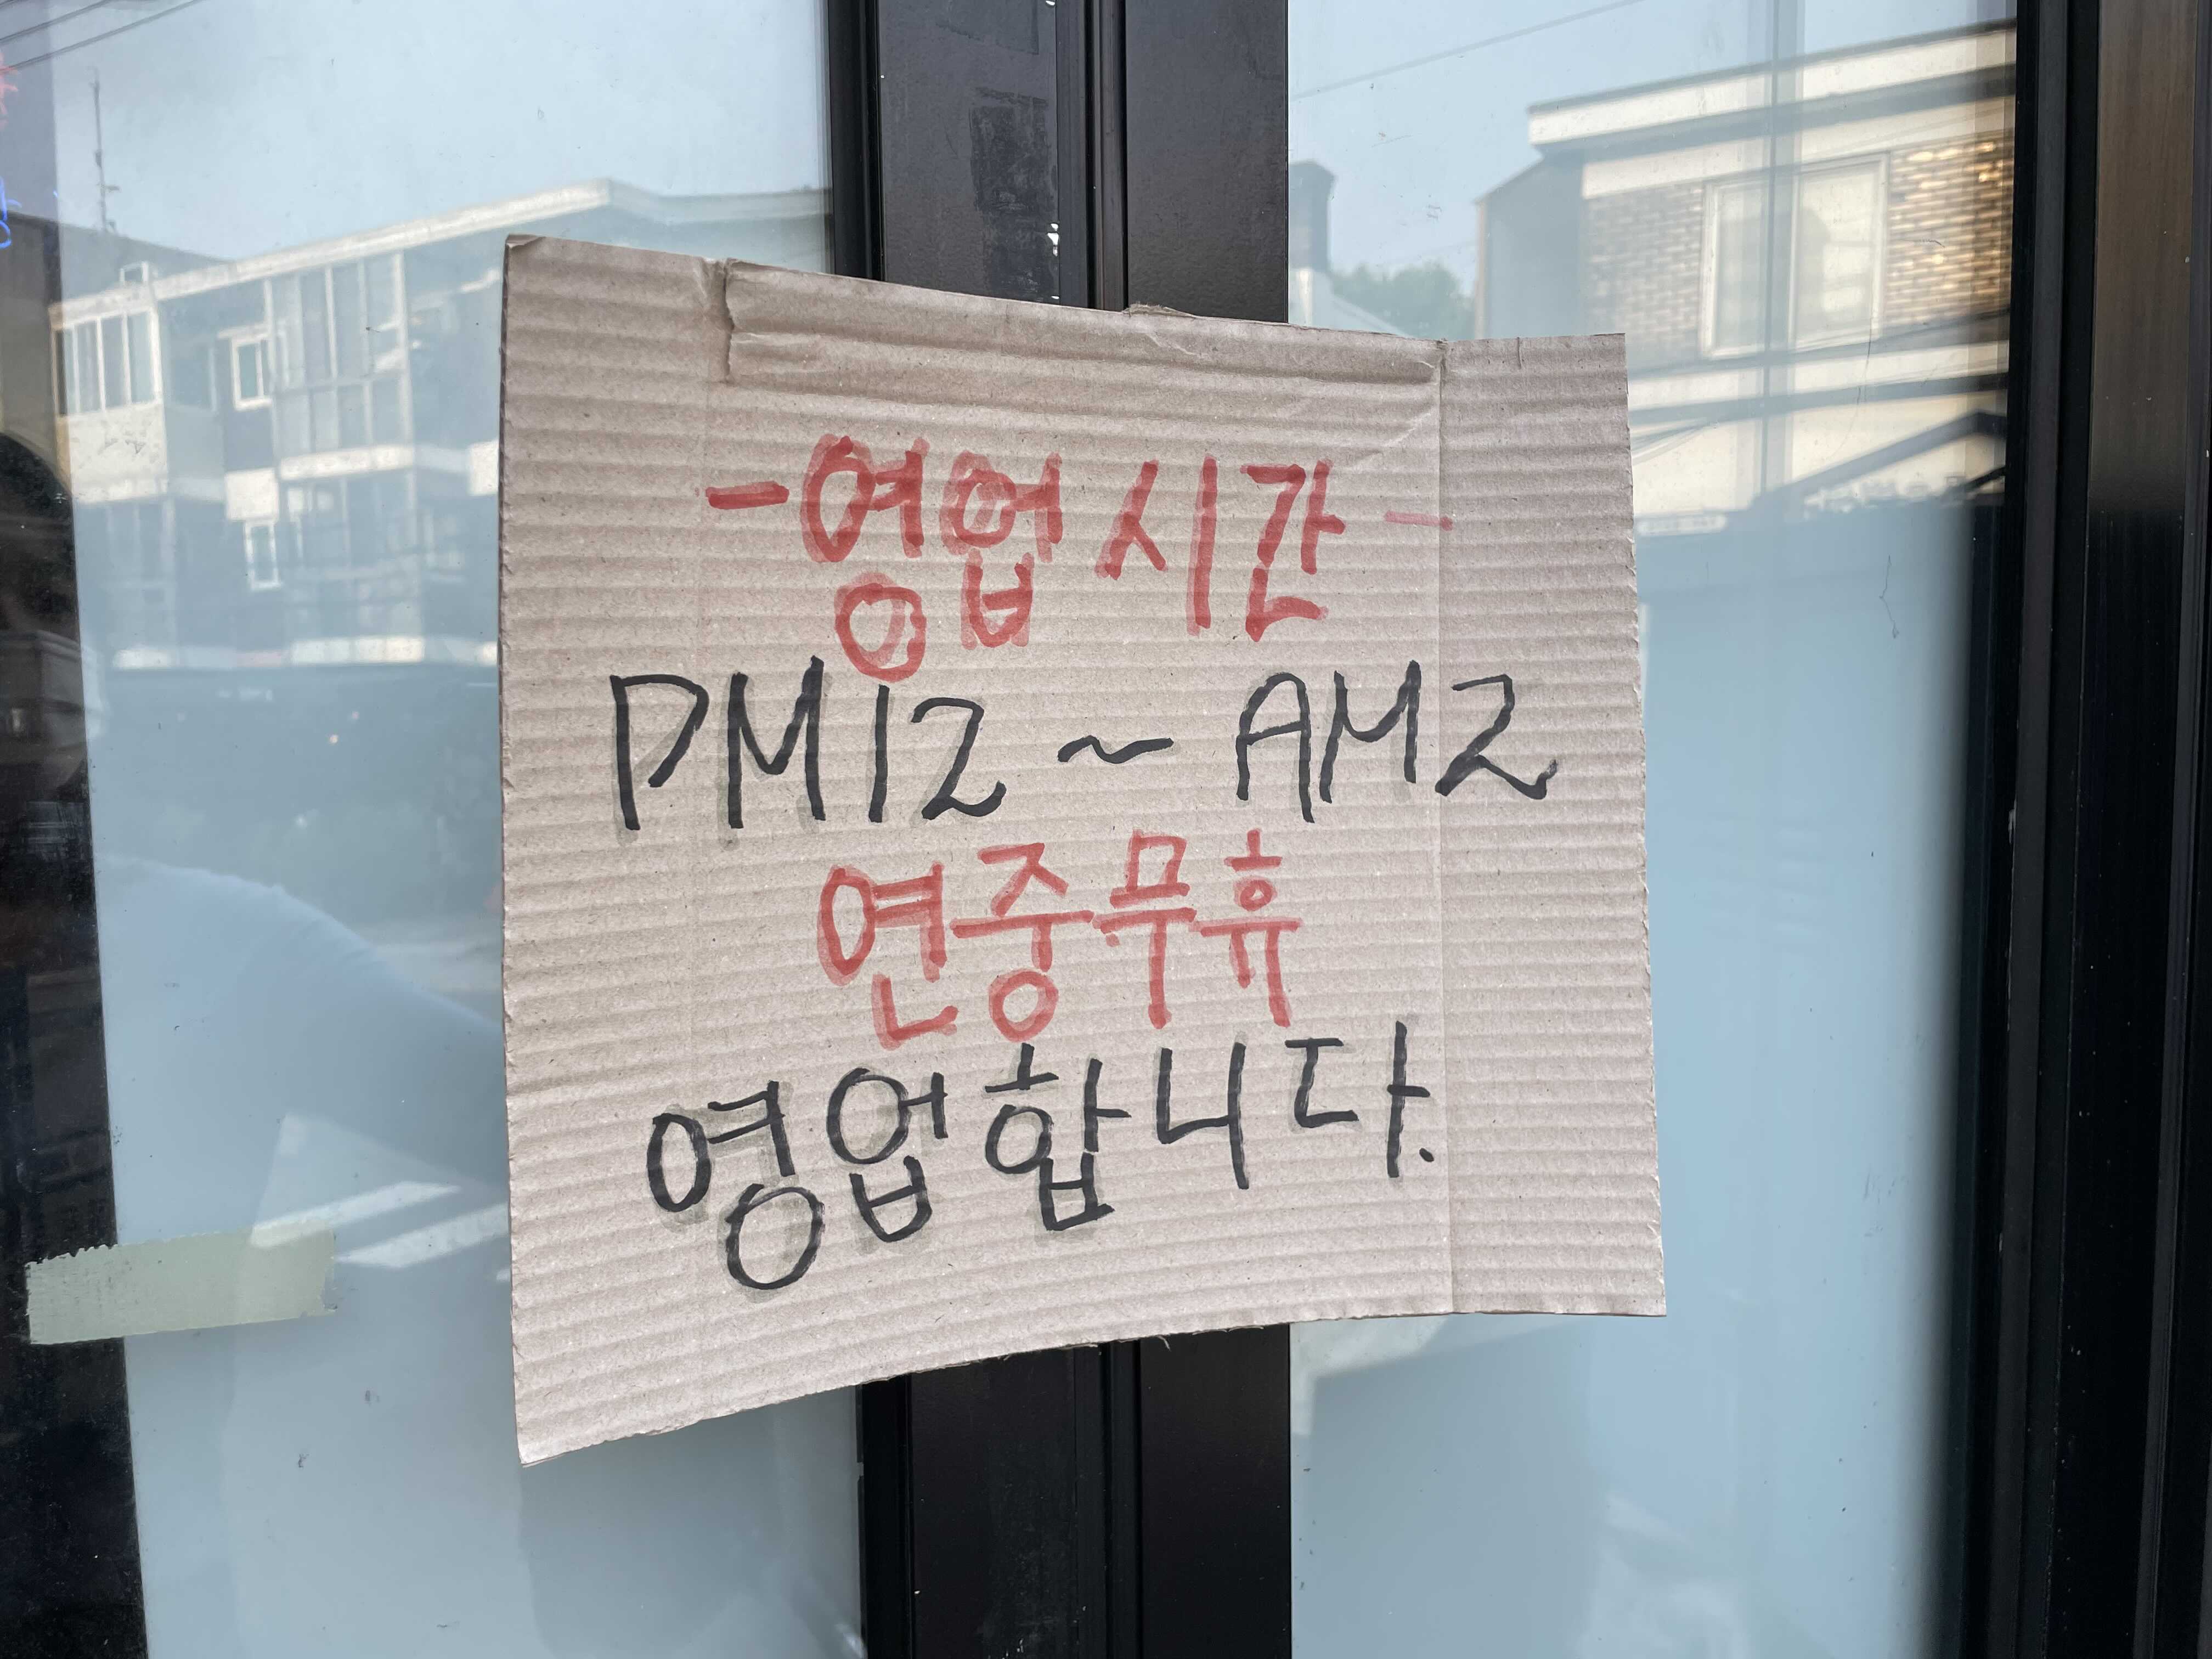 -영업시간-
PM12 ~ AM2
연중무휴
영업합니다.